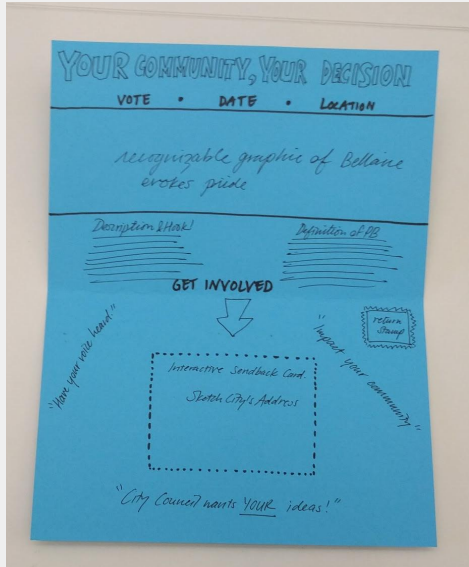 YOUR COMMUNITY, YOUR DECISION
VOTE • DATE • LOCATION
recognizable graphic of Bellaire
evokes pride
Description & Hook!
Definition of PB
GET INVOLVED
"Have your voice heard."
"Impact your community"
return
Stamp
Interactive Sendback Card.
Sketch City's Address
"City Council wants YOUR ideas!"